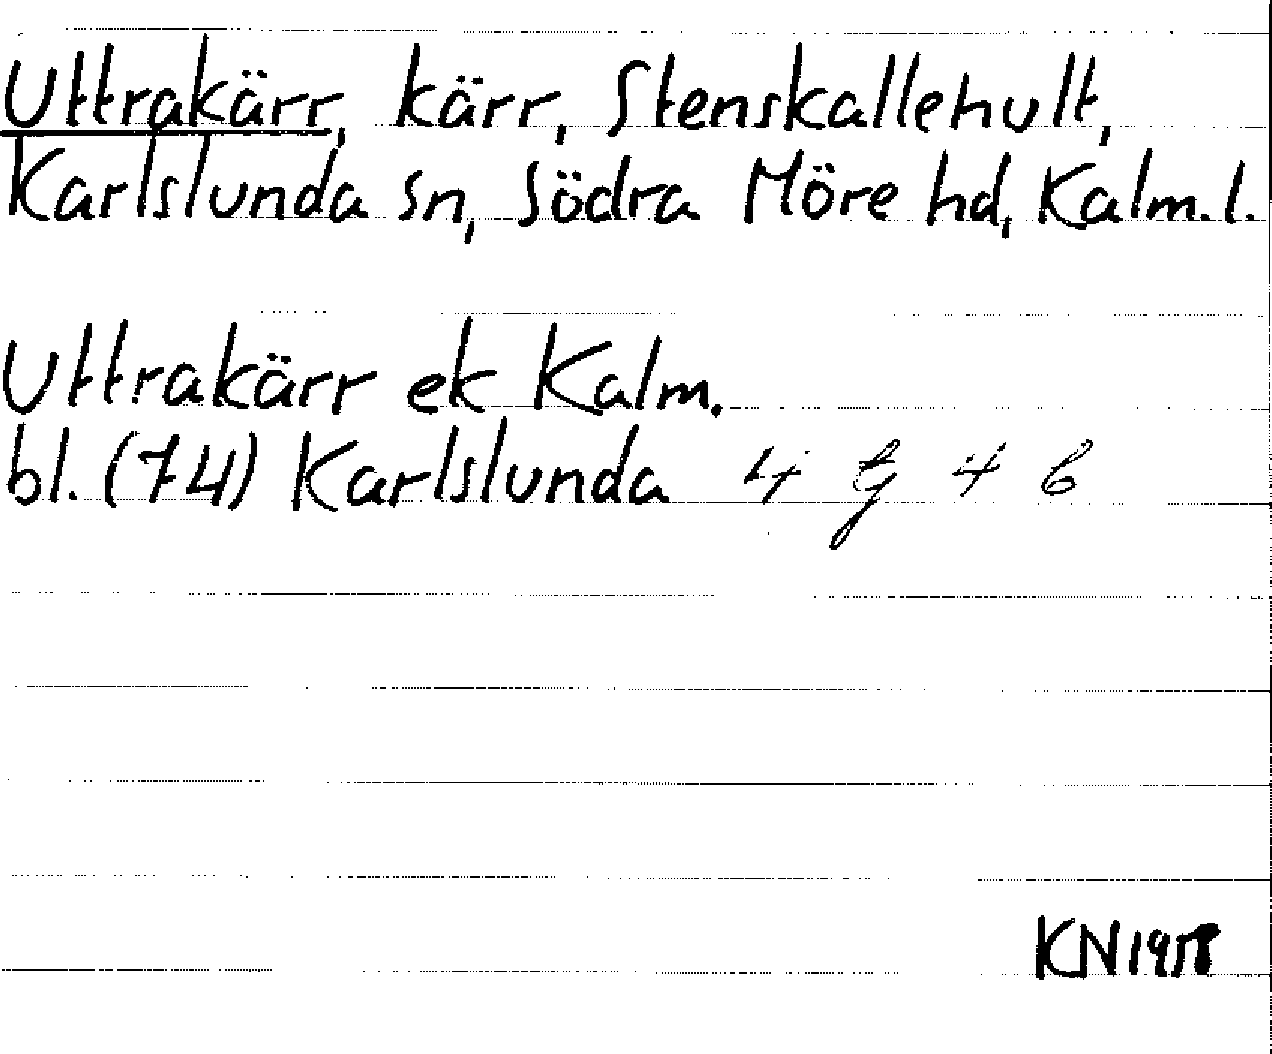 Uttrakärr, kärr, Stenskallehult,
Karlslunda sn, Södra Möre hd, Kalm. l.
Uttrakärr ek Kalm.
bl. (74) Karlslunda 4 G 4 b
KN